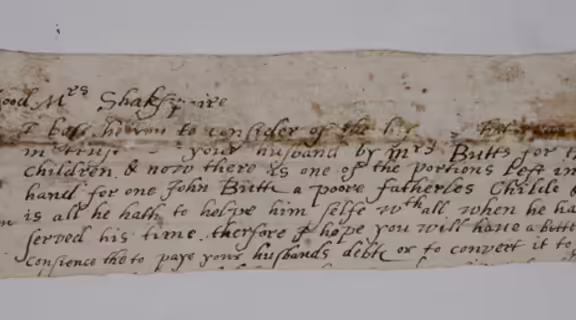 ood Mrs Shakspaire
I to consider of the
in yt trust your husband by mrs Butts for
Children & now there is one of the portions left in
hand for one John Butte a poore fatherles Childe
is all he hath to helpe him selfe wthall when he ha
served his time. therfore I hope you will have a bette
consience to paye your husbands debte or to convert it to